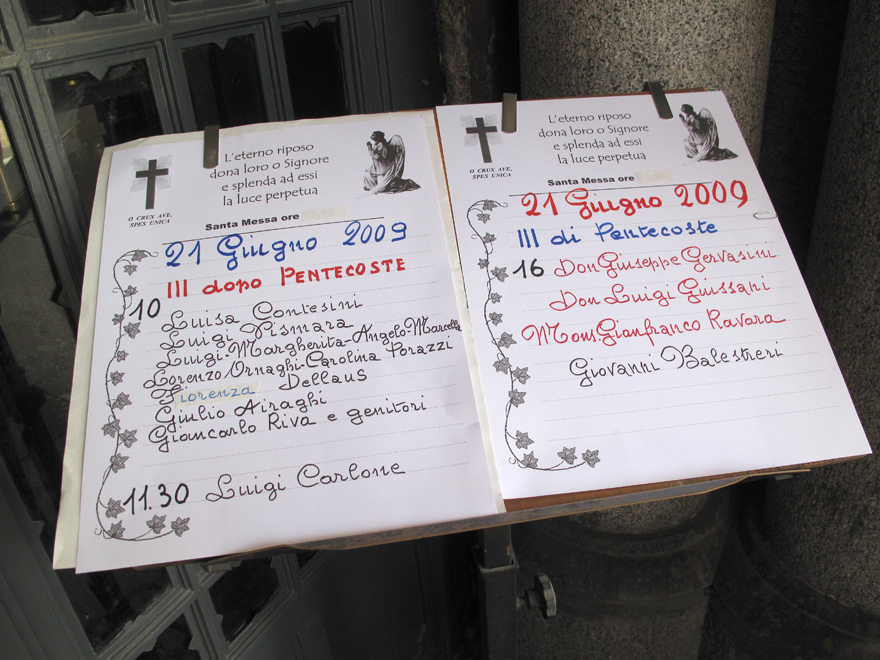 L'eterno riposo
dona loro o Signore
e splenda ad essi
la luce perpetua
O CRUX AVE,
SPES UNICA
Santa Messa ore
21 Giugno 2009
III dopo PENTECOSTE
10 Luisa Contesini
Luigi Pismara
Luigi-Margherita-Angelo-Marcella
Lorenzo Ornaghi-Carolina Porazzi
Fiorenza Dellaus
Giulio Airaghi
Giancarlo Riva e genitori
11.30 Luigi Carlone
L'eterno riposo
dona loro o Signore
e splenda ad essi
la luce perpetua
O CRUX AVE,
SPES UNICA
Santa Messa ore
21 Giugno 2009
III di Pentecoste
16 Don Giuseppe Gervasini
Don Luigi Guissani
Mons. Gianfranco Ravara
Giovanni Balestreri